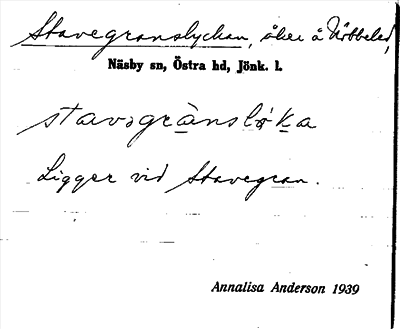 Stavegranslyckan, åker å Nöbbeled,
Näsby sn, Östra hd, Jönk. l.
stavəgrànslø̀ka
Ligger vid Stavegran.
Annalisa Anderson 1939